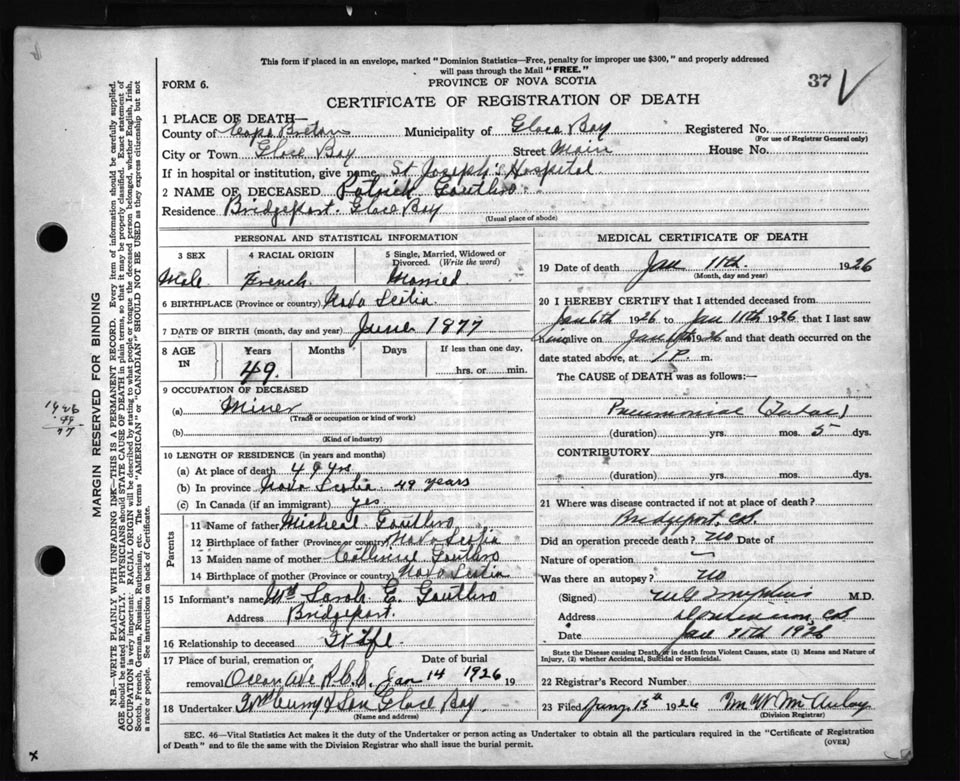 This form if placed in an envelope, marked "Dominion Statistics—Free, penalty for improper use $300," and properly addressed
will pass through the Mail "FREE."
FORM 6.
PROVINCE OF NOVA SCOTIA
37
CERTIFICATE OF REGISTRATION OF DEATH
1 PLACE OF DEATH—
County of Cape Breton Municipality of Glace Bay Registered No.
(For use of Registrar General only)
City or Town Glace Bay Street Main House No.
If in hospital or institution, give name St Joseph's Hospital
2 NAME OF DECEASED Patrick Gouthro
Residence Bridgeport. Glace Bay
(Usual place of abode)
PERSONAL AND STATISTICAL INFORMATION
3 SEX 4 RACIAL ORIGIN 5 Single, Married, Widowed or
Divorced. (Write the word)
Male French Married
6 BIRTHPLACE (Province or country) Nova Scotia
7 DATE OF BIRTH (month, day and year) June 1877
8 AGE IN Years Months Days If less than one day,
49 hrs. or min.
9 OCCUPATION OF DECEASED
(a) Miner
(Trade or occupation or kind of work)
(b)
(Kind of industry)
10 LENGTH OF RESIDENCE (in years and months)
(a) At place of death 49 yrs
(b) In province Nova Scotia 49 years
(c) In Canada (if an immigrant) yes
Parents
11 Name of father Micheal Gouthro
12 Birthplace of father (Province or country) Nova Scotia
13 Maiden name of mother Gouthro
14 Birthplace of mother (Province or country) Nova Scotia
15 Informant's name Mrs Sarah E. Gouthro
Address Bridgeport.
16 Relationship to deceased Wife
17 Place of burial, cremation or Date of burial
removal Ocean Ave R.C.C. Jan 14 1926 19
18 Undertaker & Son Glace Bay
(Name and address)
MEDICAL CERTIFICATE OF DEATH
19 Date of death Jan 11th. 1926
(Month, day and year)
20 I HEREBY CERTIFY that I attended deceased from
Jan 6th 1926 to Jan 11th 1926 that I last saw
alive on Jan 1926 and that death occurred on the
date stated above, at 1 P. m.
The CAUSE of DEATH was as follows:—
Pneumonia
(duration) yrs. mos. 5 dys.
CONTRIBUTORY
(duration) yrs. mos. dys.
21 Where was disease contracted if not at place of death?
Bridgeport, C.B.
Did an operation precede death? no Date of
Nature of operation —
Was there an autopsy? no
(Signed) M.D.
Address Dominion, C.B.
Date Jan 11th 1926
State the Disease causing Death, or in death from Violent Causes, state (1) Means and Nature of
Injury, (2) whether Accidental, Suicidal or Homicidal.
22 Registrar's Record Number
23 Filed Jany. 13th 1926
(Division Registrar)
SEC. 46—Vital Statistics Act makes it the duty of the Undertaker or person acting as Undertaker to obtain all the particulars required in the "Certificate of Registration
of Death" and to file the same with the Division Registrar who shall issue the burial permit.
(OVER)
MARGIN RESERVED FOR BINDING
N.B.—WRITE PLAINLY WITH UNFADING INK—THIS IS A PERMANENT RECORD. Every item of information should be carefully supplied.
AGE should be stated EXACTLY. PHYSICIANS should STATE CAUSE OF DEATH in plain terms, so that it may be properly classified. Exact statement of
OCCUPATION is very important. RACIAL ORIGIN will be described by stating to what people or tongue the deceased person belonged, whether English, Irish,
Scotch, French, German, Russian, Ruthenian, etc. The terms "AMERICAN" or "CANADIAN" SHOULD NOT BE USED as they express citizenship but not
a race or people. See instructions on back of Certificate.
1926
x